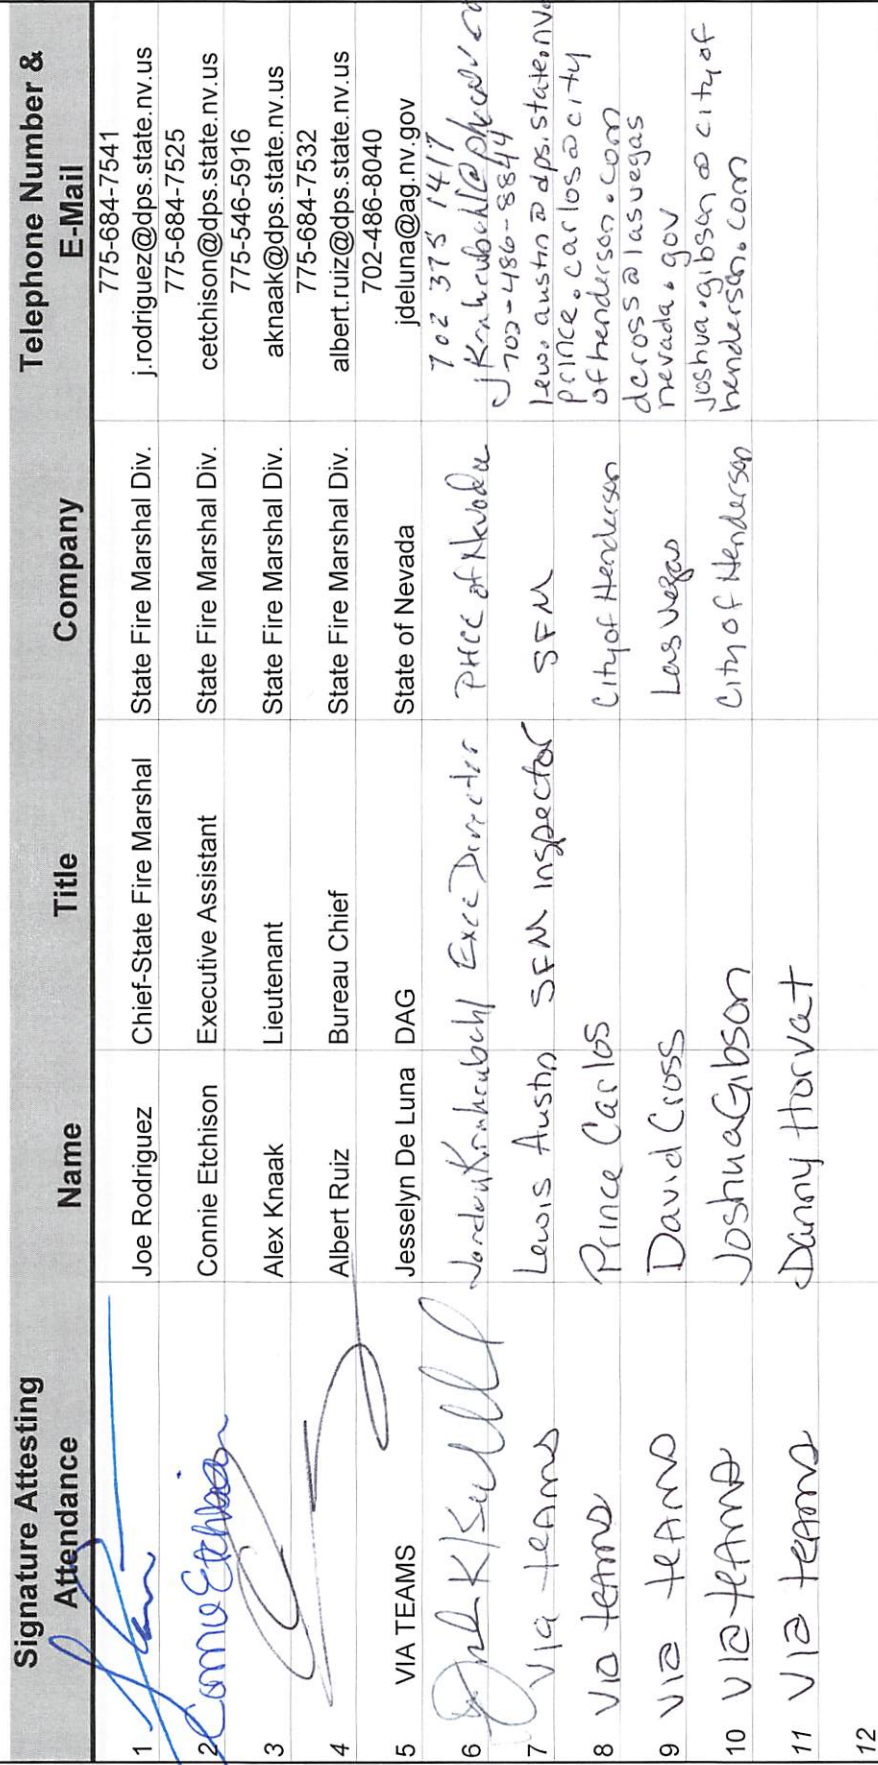 Signature Attesting Attendance Name Title Company Telephone Number & E-Mail
1 Joe Rodriguez Chief-State Fire Marshal State Fire Marshal Div. 775-684-7541
j.rodriguez@dps.state.nv.us
2 Connie Etchison Connie Etchison Executive Assistant State Fire Marshal Div. 775-684-7525
cetchison@dps.state.nv.us
3 Alex Knaak Lieutenant State Fire Marshal Div. 775-546-5916
aknaak@dps.state.nv.us
4 Albert Ruiz Bureau Chief State Fire Marshal Div. 775-684-7532
albert.ruiz@dps.state.nv.us
5 VIA TEAMS Jesselyn De Luna DAG State of Nevada 702-486-8040
jdeluna@ag.nv.gov
6 Exec Director PHCC of Nevada 702 375 1417
7 Via teams Lewis Austin SFM Inspector SFM 702-486-8844
lew.austin@dps.state.nv.
8 Via teams Prince Carlos City of Henderson prince.carlos@city
ofhenderson.com
9 Via teams David Cross Las Vegas dcross@lasvegas
nevada.gov
10 Via teams Joshua Gibson City of Henderson joshua.gibson@cityof
henderson.com
11 Via teams Danny Horvat
12